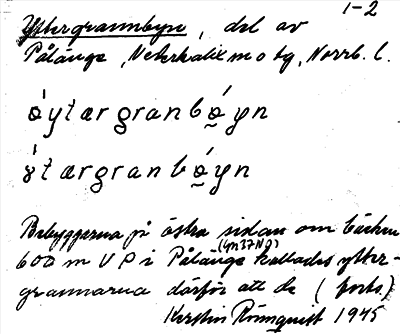 1-2
Yttergrannbyn, del av
Pålänge, Nederkalix m o tg, Norrb. l.
óytærgranbó̰yn
ýtærgranbó̰yn
Bebyggarna på östra sidan om bäcken
(Gn37NJ)
600 m V P i Pålänge kallades ytter-
grannarna därför att de (forts)
Kerstin Rönnquist 1945